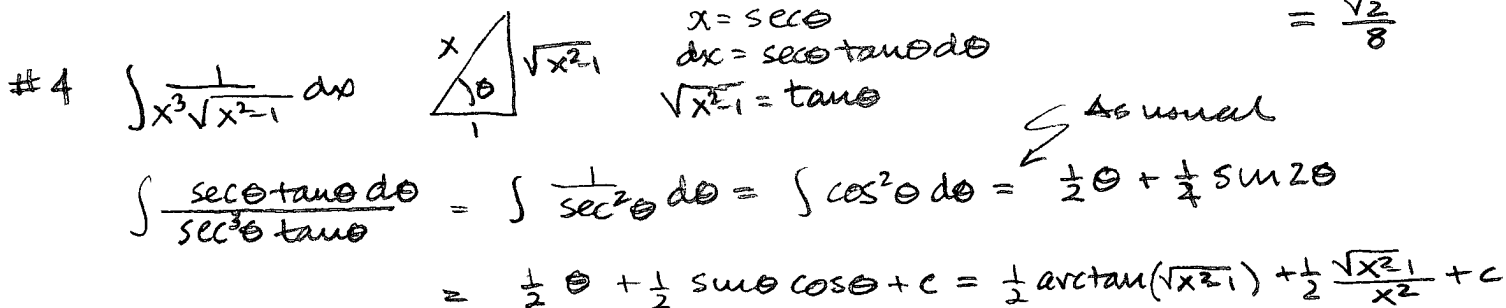 = √2/8
#4 ∫ 1/(x³√(x²-1)) dx
x
θ
1
√(x²-1)
x = secθ
dx = secθ tanθ dθ
√(x²-1) = tanθ
As usual
∫ (secθ tanθ dθ)/(sec³θ tanθ) = ∫ 1/sec²θ dθ = ∫ cos²θ dθ = ½θ + ¼ sin2θ
= ½ θ + ½ sinθ cosθ + c = ½ arctan(√(x²-1)) + ½ √(x²-1)/x² + c